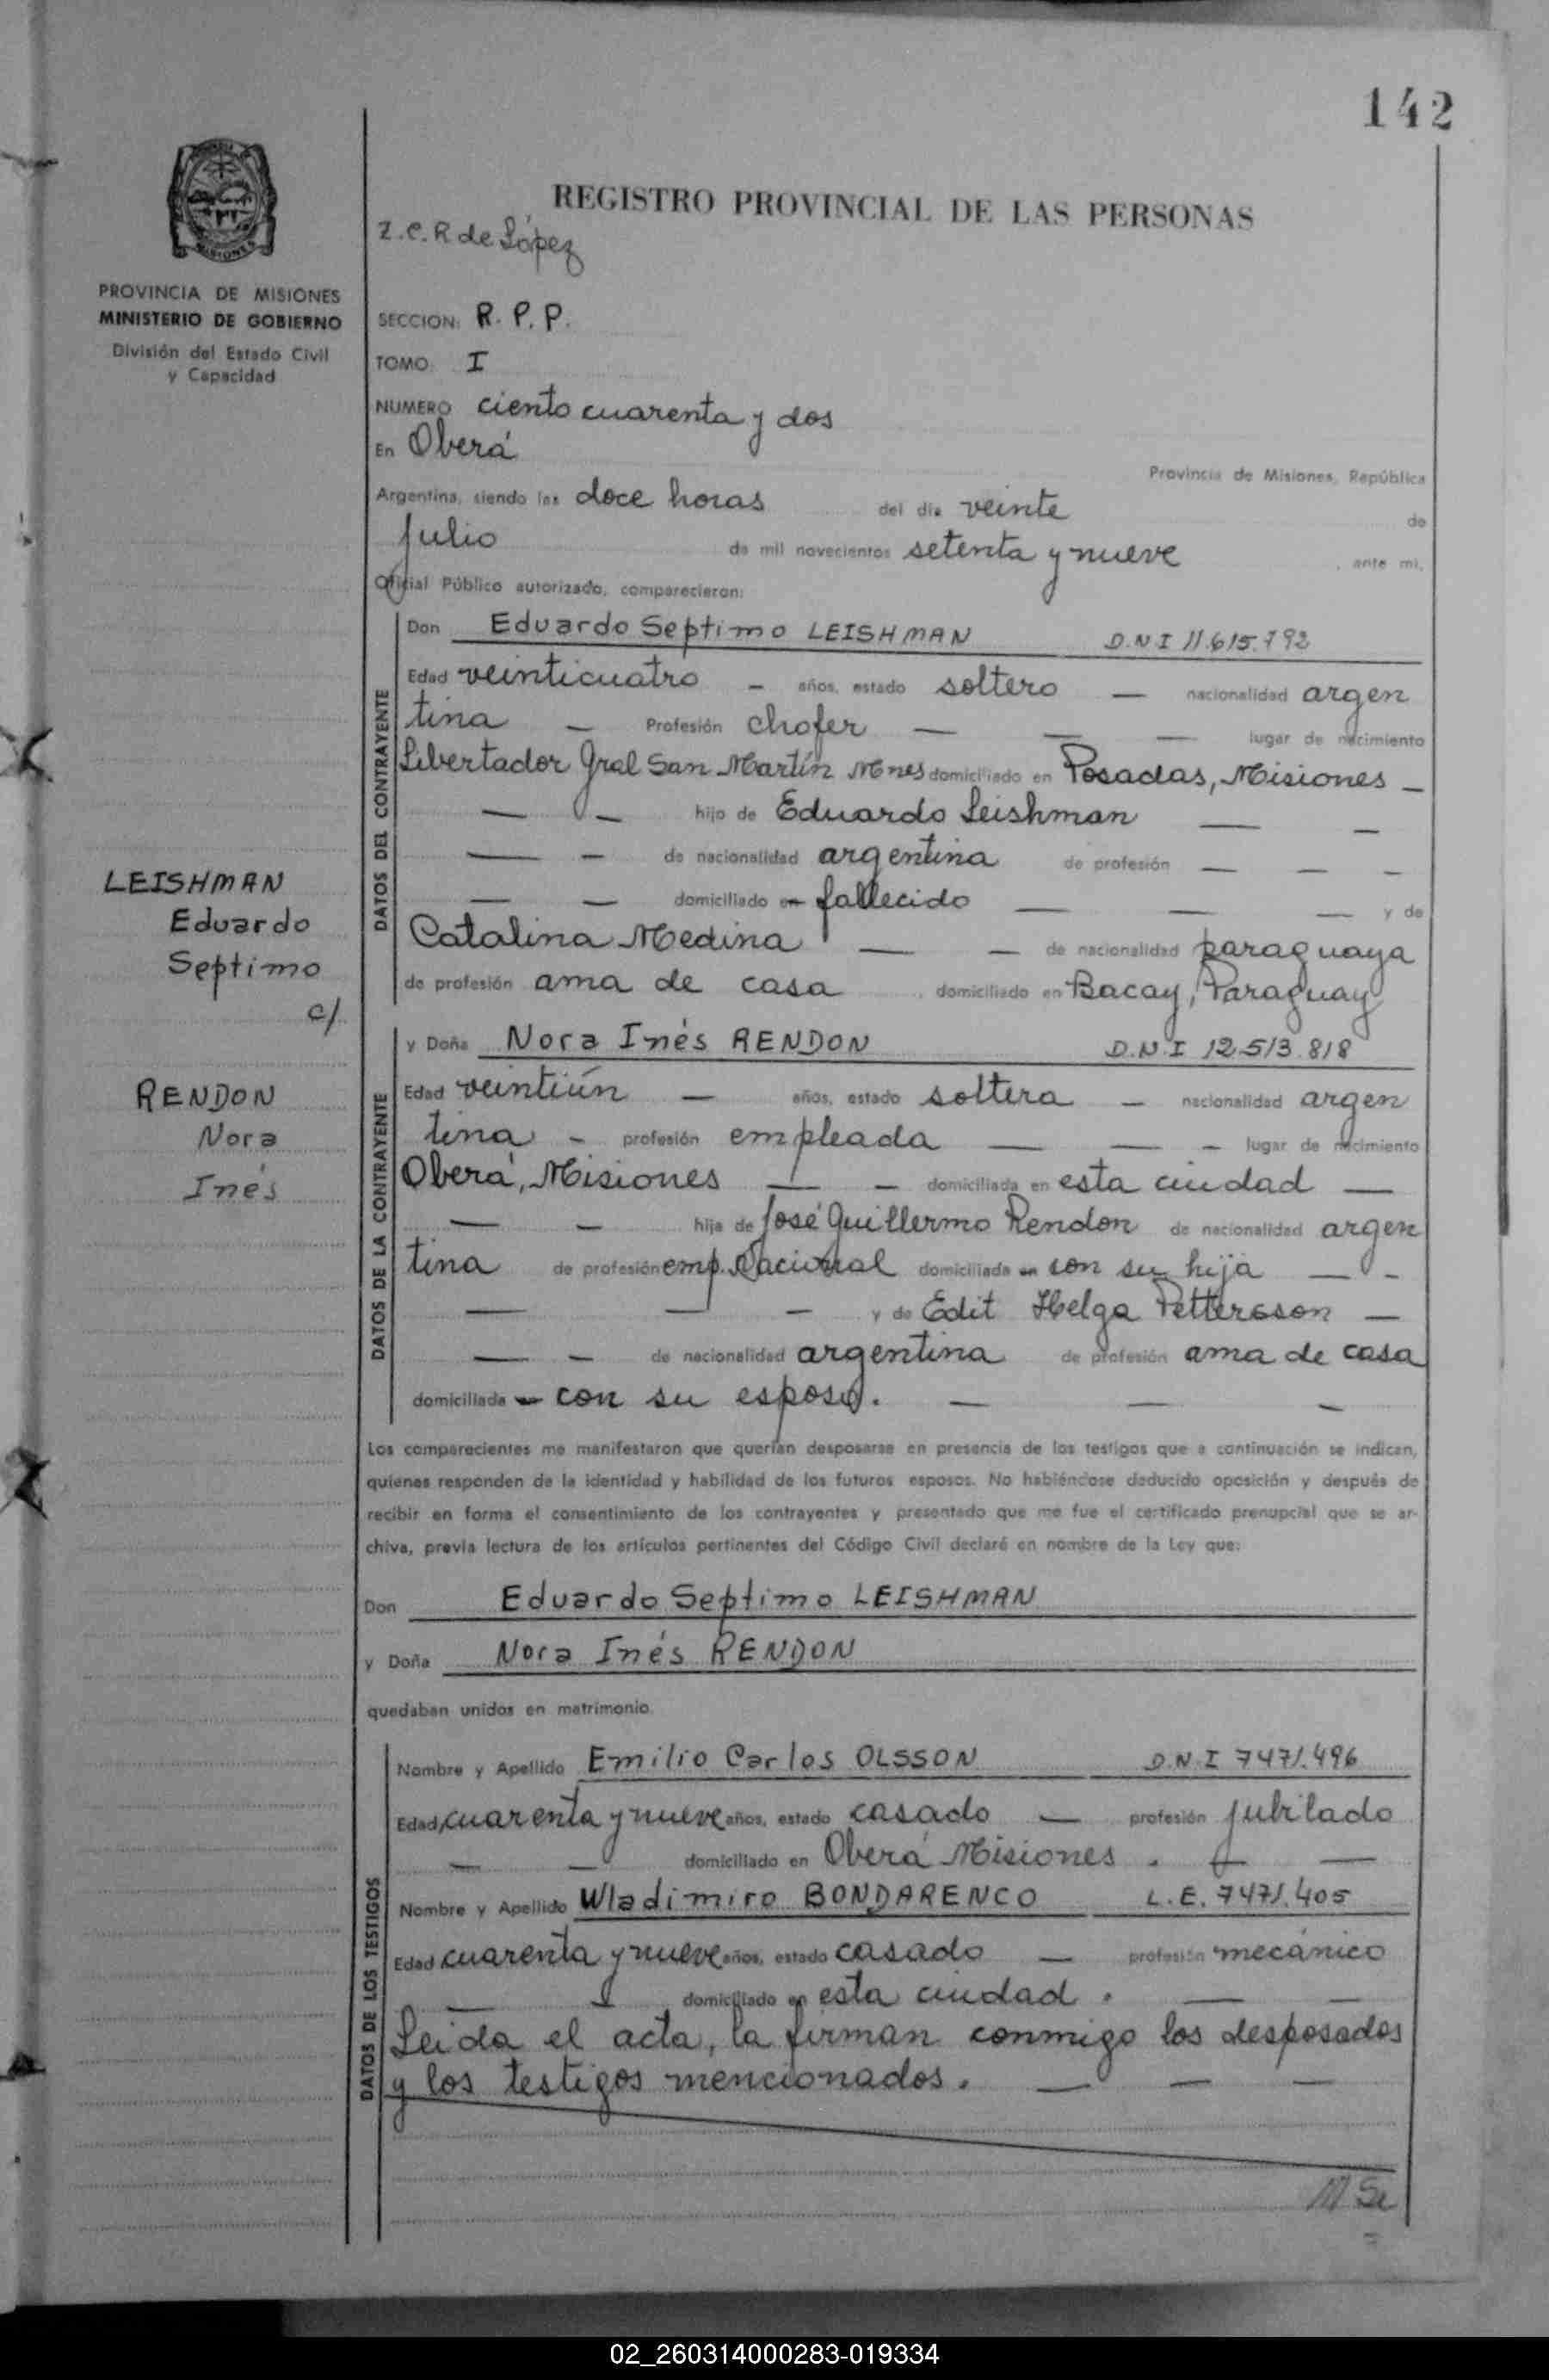 142
REGISTRO PROVINCIAL DE LAS PERSONAS
Z.C.R de López
MISIONES
PROVINCIA DE MISIONES
MINISTERIO DE GOBIERNO
División del Estado Civil
y Capacidad
SECCION: R. P. P.
TOMO: I
NUMERO ciento cuarenta y dos
En Oberá
Provincia de Misiones, República
Argentina, siendo las doce horas del día veinte de
julio de mil novecientos setenta y nueve, ante mí,
Oficial Público autorizado, comparecieron:
DATOS DEL CONTRAYENTE
Don Eduardo Septimo LEISHMAN D.N.I 11.615.792
Edad veinticuatro — años, estado soltero — nacionalidad argen
tina — Profesión chofer — — — lugar de nacimiento
Libertador Gral San Martín Mnes domiciliado en Posadas, Misiones —
— — hijo de Eduardo Leishman — —
— — de nacionalidad argentina de profesión — — —
— — domiciliado en fallecido — — — y de
Catalina Medina — — de nacionalidad paraguaya
de profesión ama de casa domiciliado en Bacay, Paraguay
LEISHMAN
Eduardo
Septimo
c/
RENDON
Nora
Inés
DATOS DE LA CONTRAYENTE
y Doña Nora Inés RENDON D.N.I 12.513.818
Edad veintiún — años, estado soltera — nacionalidad argen
tina — profesión empleada — — — lugar de nacimiento
Oberá, Misiones — — domiciliada en esta ciudad —
— — hija de José Guillermo Rendon de nacionalidad argen
tina de profesión emp. Nacional domiciliada en con su hija — —
— — — y de Edit Helga Pettersson —
— — de nacionalidad argentina de profesión ama de casa
domiciliada en con su esposo. — — —
Los comparecientes me manifestaron que querían desposarse en presencia de los testigos que a continuación se indican,
quienes responden de la identidad y habilidad de los futuros esposos. No habiéndose deducido oposición y después de
recibir en forma el consentimiento de los contrayentes y presentado que me fue el certificado prenupcial que se ar-
chiva, previa lectura de los artículos pertinentes del Código Civil declaré en nombre de la Ley que:
Don Eduardo Septimo LEISHMAN
y Doña Nora Inés RENDON
quedaban unidos en matrimonio.
DATOS DE LOS TESTIGOS
Nombre y Apellido Emilio Carlos OLSSON D.N.I 7471.496
Edad cuarenta y nueve años, estado casado — profesión jubilado
— — domiciliado en Oberá Misiones. — —
Nombre y Apellido Wladimiro BONDARENCO L.E. 7471.405
Edad cuarenta y nueve años, estado casado — profesión mecánico
— domiciliado en esta ciudad. — —
Leida el acta, la firman conmigo los desposados
y los testigos mencionados. — — —
02_260314000283-019334